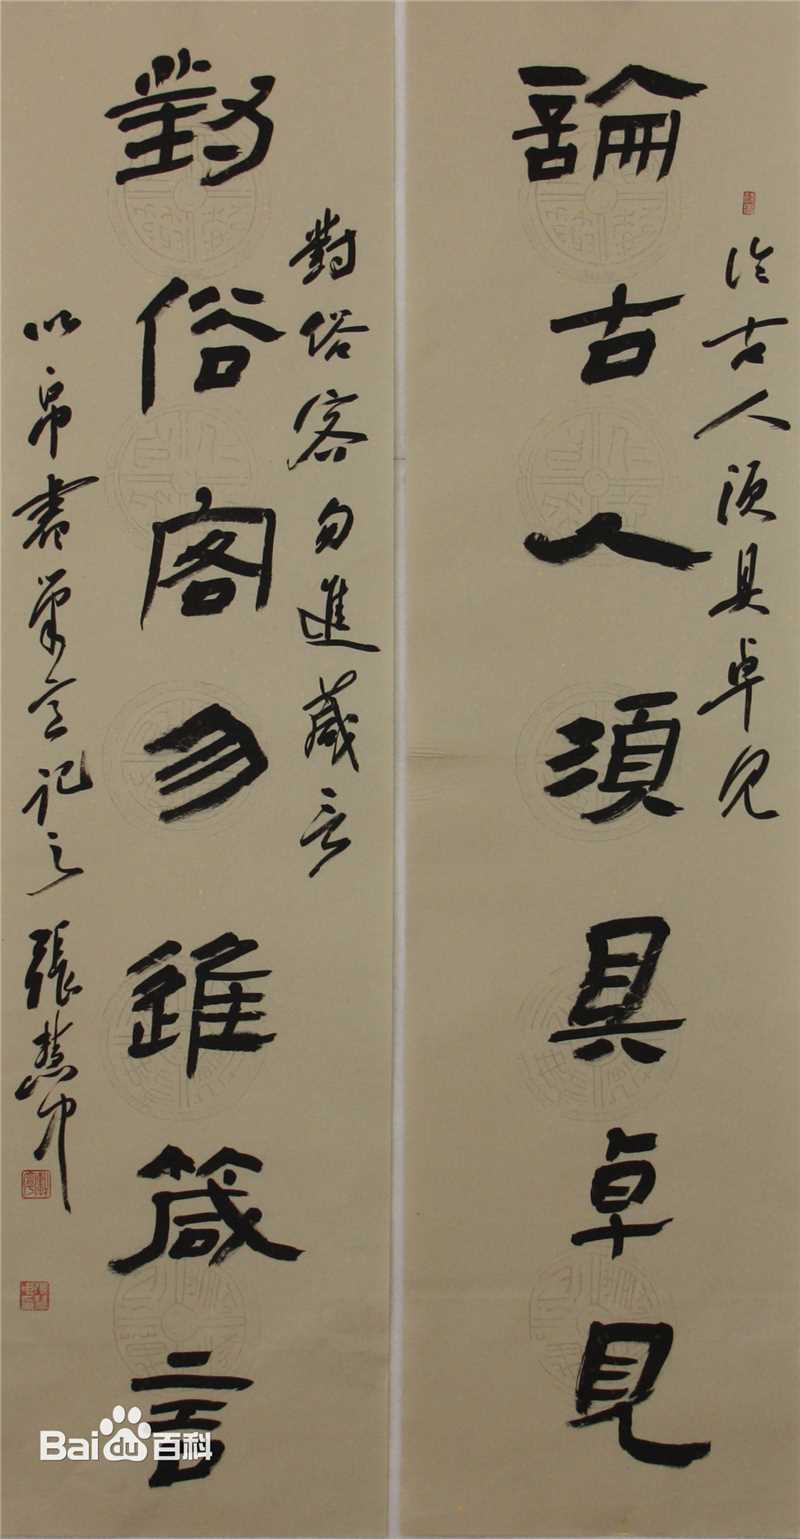 论古人须具卓见
論古人須具卓見
對俗客勿進箴言
對俗客勿進箴言
以帛書筆意記之 張慧中
Baidu百科